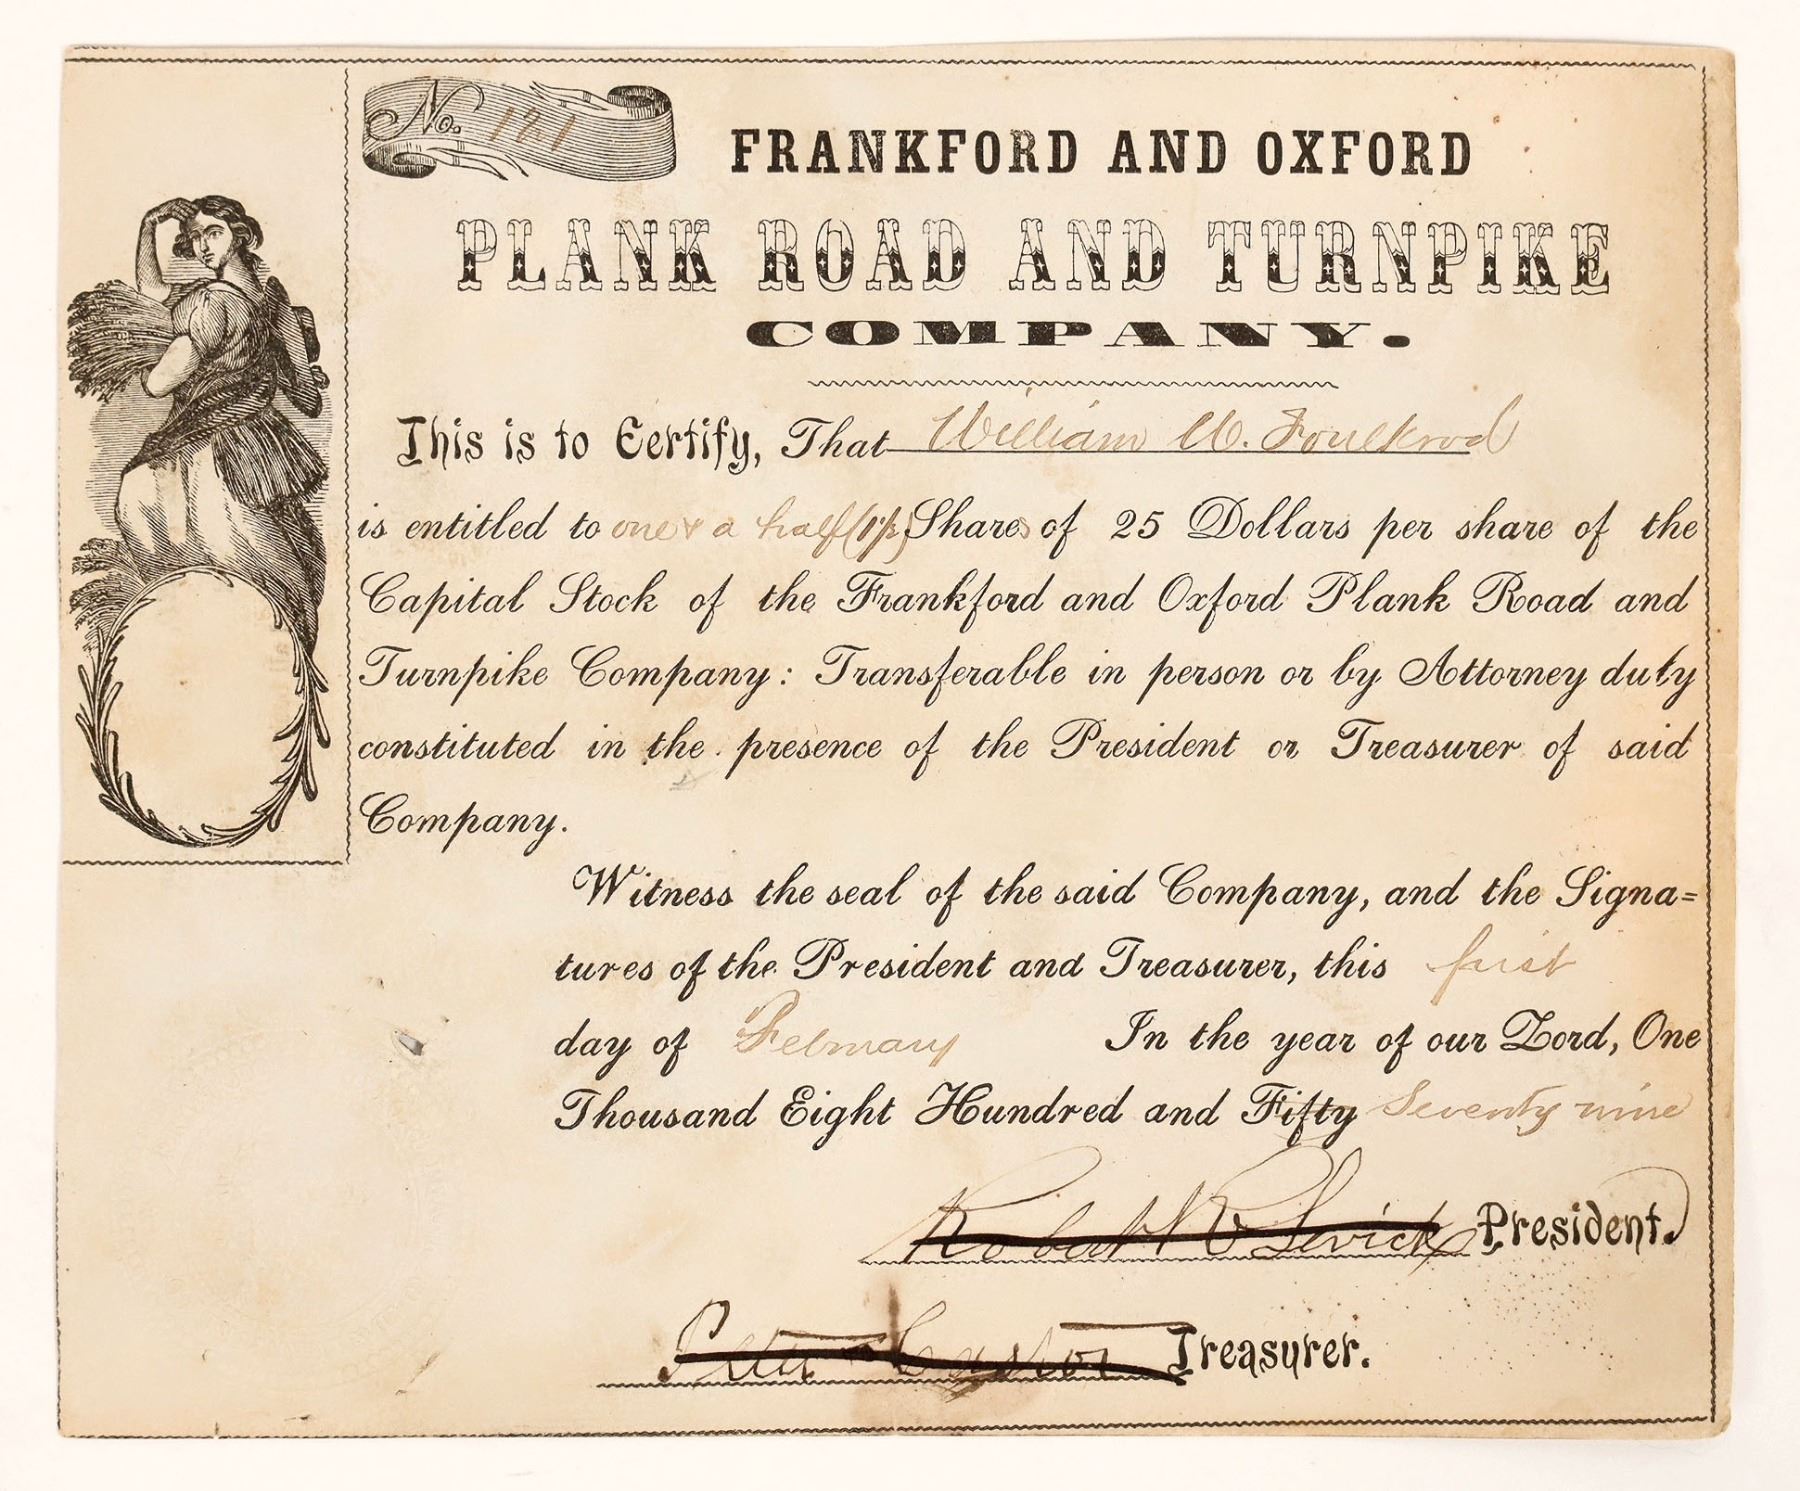 No. 121
FRANKFORD AND OXFORD
PLANK ROAD AND TURNPIKE
COMPANY.
This is to Certify, That William W. Foulkrod
is entitled to one & a half (1½) Shares of 25 Dollars per share of the
Capital Stock of the Frankford and Oxford Plank Road and
Turnpike Company: Transferable in person or by Attorney duty
constituted in the presence of the President or Treasurer of said
Company.
Witness the seal of the said Company, and the Signa=
tures of the President and Treasurer, this first
day of February In the year of our Lord, One
Thousand Eight Hundred and Fifty Seventy nine
Robert President.
Peter Castor Treasurer.